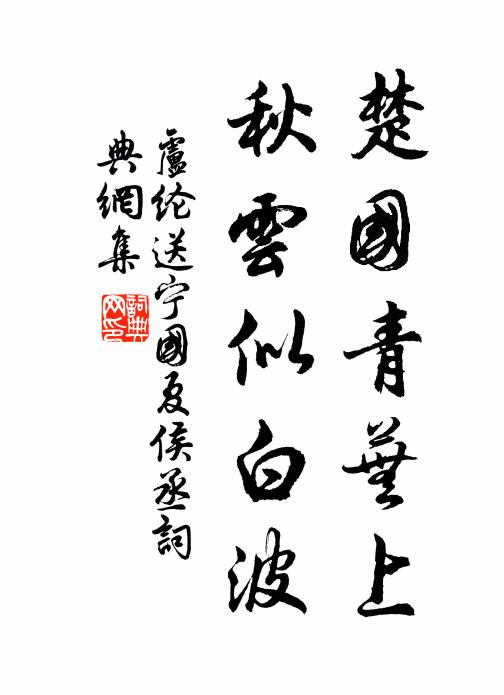 楚國青蕪上
秋雲似白波
盧纶送宁國夏侯丞詞
典網集
詞典网印